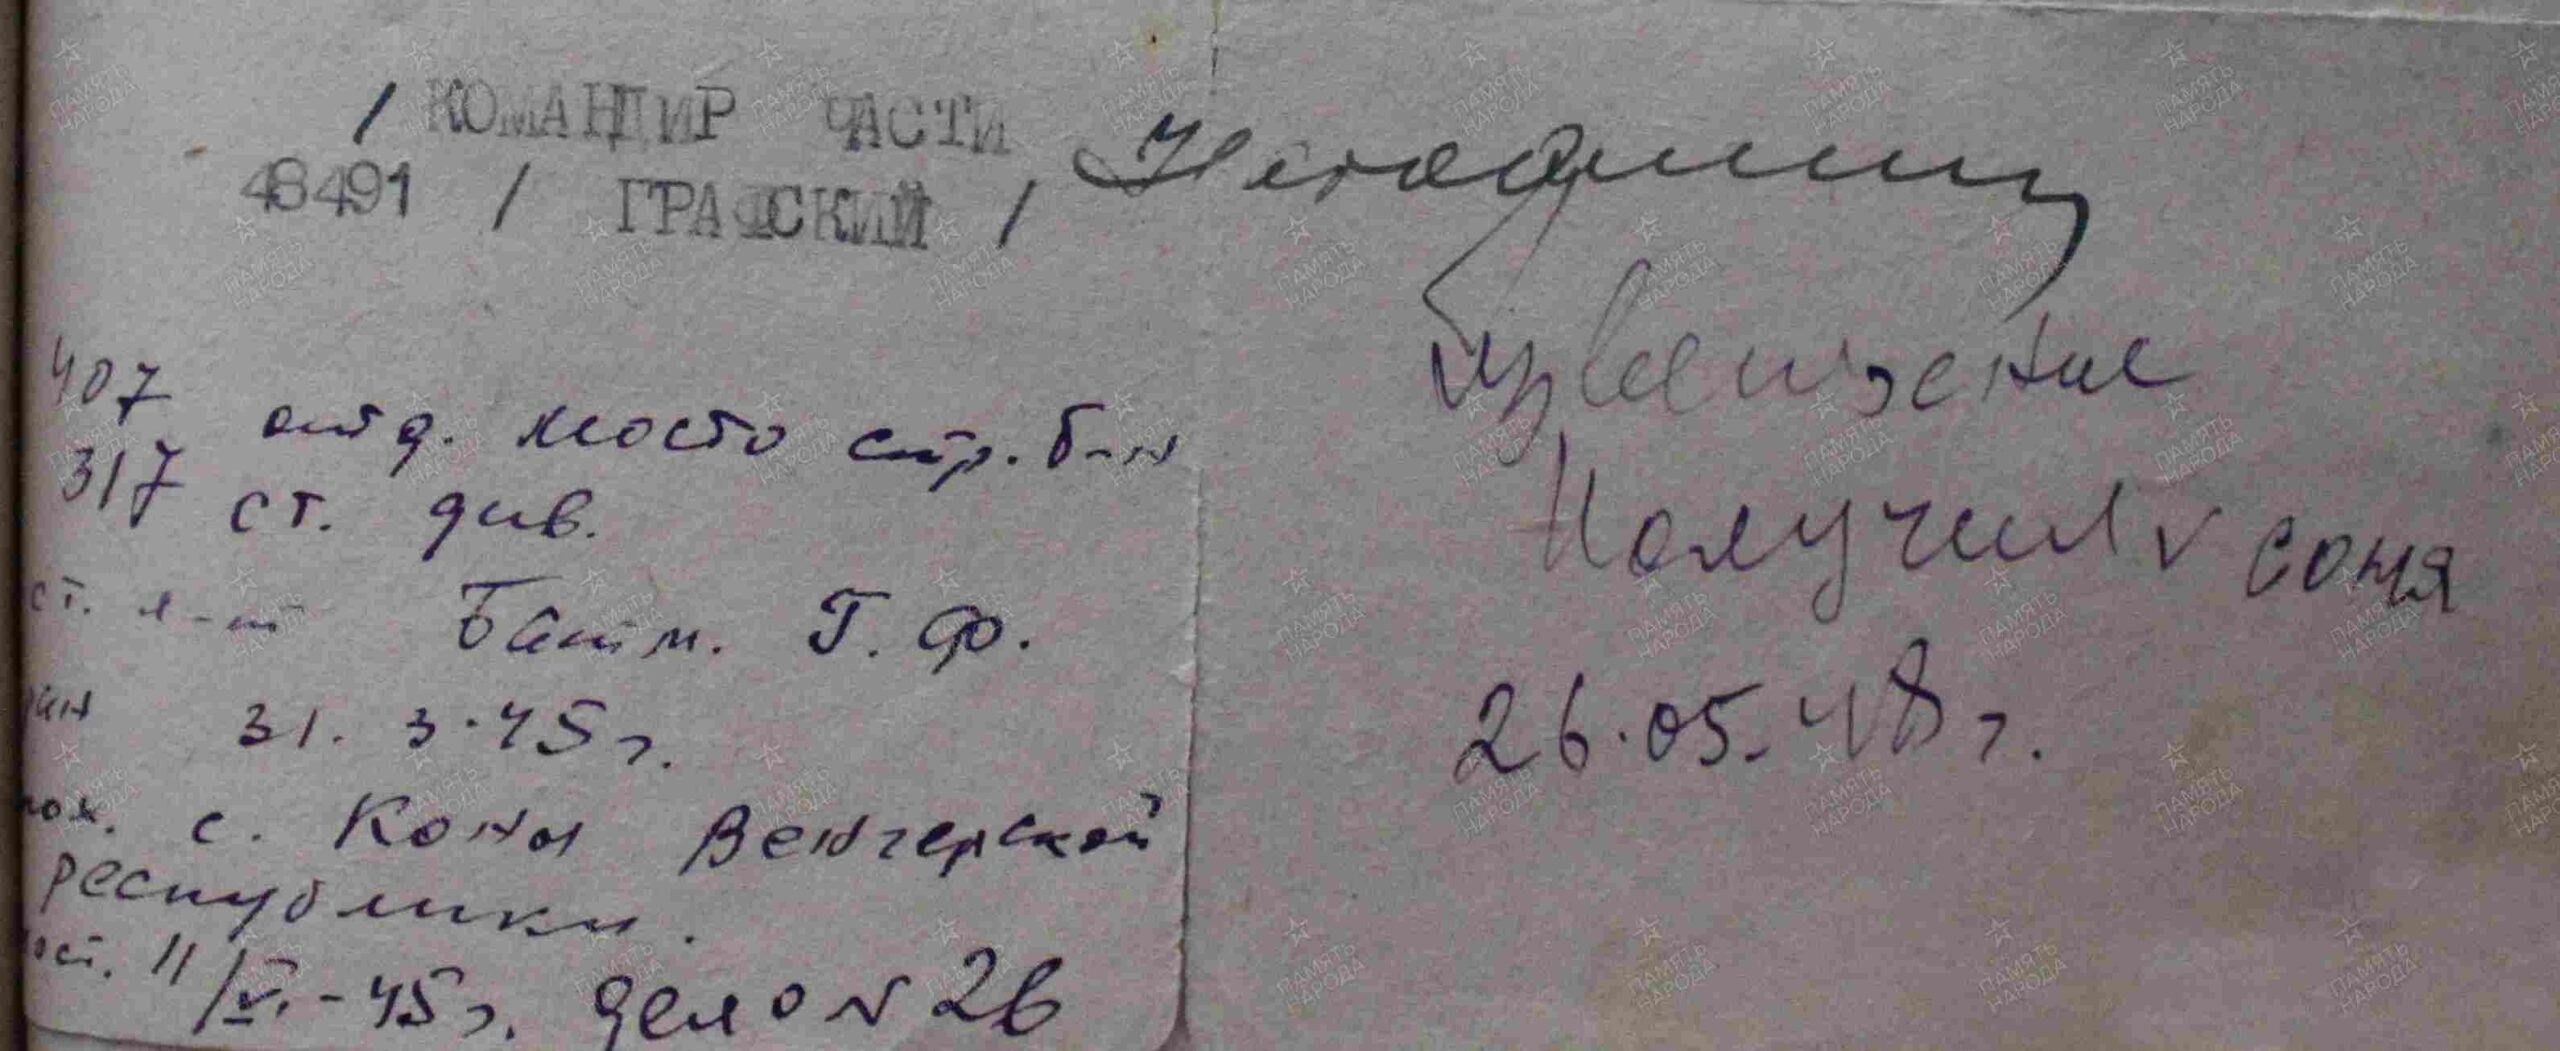 / КОМАНДИР ЧАСТИ
48491 / ГРАФСКИЙ /
407 отд. мосто стр. б-н
317 ст. див.
ст. л-т Батм. Г. Ф.
31. 3. 45 г.
с. Коны Венгерской
республики.
11/VI. - 45 г. дело № 26
Извещение
Получил соня
26.05.48 г.
ПАМЯТЬ НАРОДА